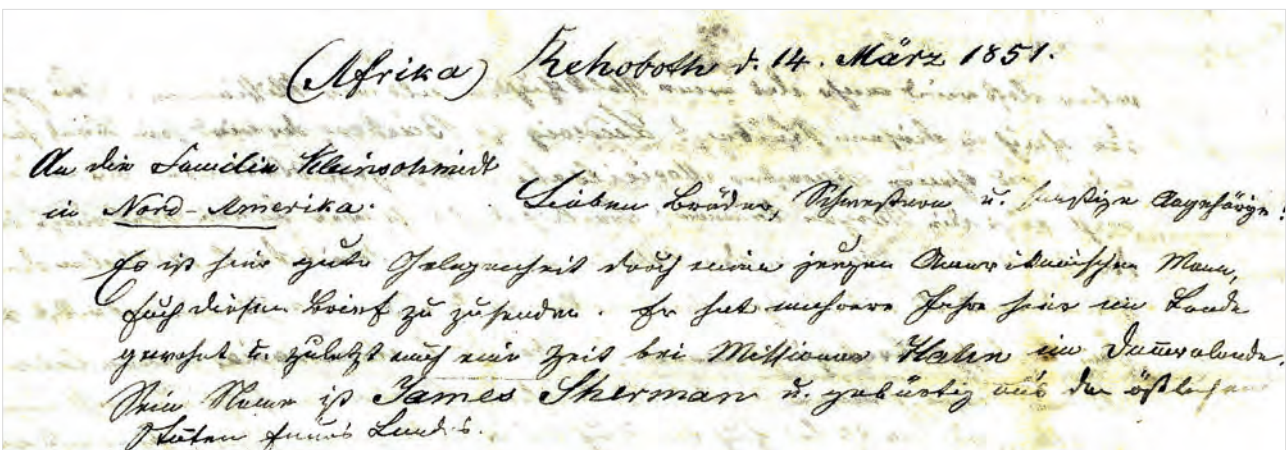 (Afrika) Rehoboth d. 14. März 1851.
An die Familie Kleinschmidt
in Nord-Amerika.
Lieben Brüder, Schwestern u. sonstige Angehörige!
Es ist hier gute Gelegenheit durch einen jungen Amerikanischen Mann,
Euch diesen Brief zu zusenden. Er hat mehrere Jahre hier im Lande
gewohnt u. zuletzt auch eine Zeit bei Missionar Hahn im Damaralande.
Sein Name ist James Sherman u. gebürtig aus den östlichen
Staaten Eures Landes.